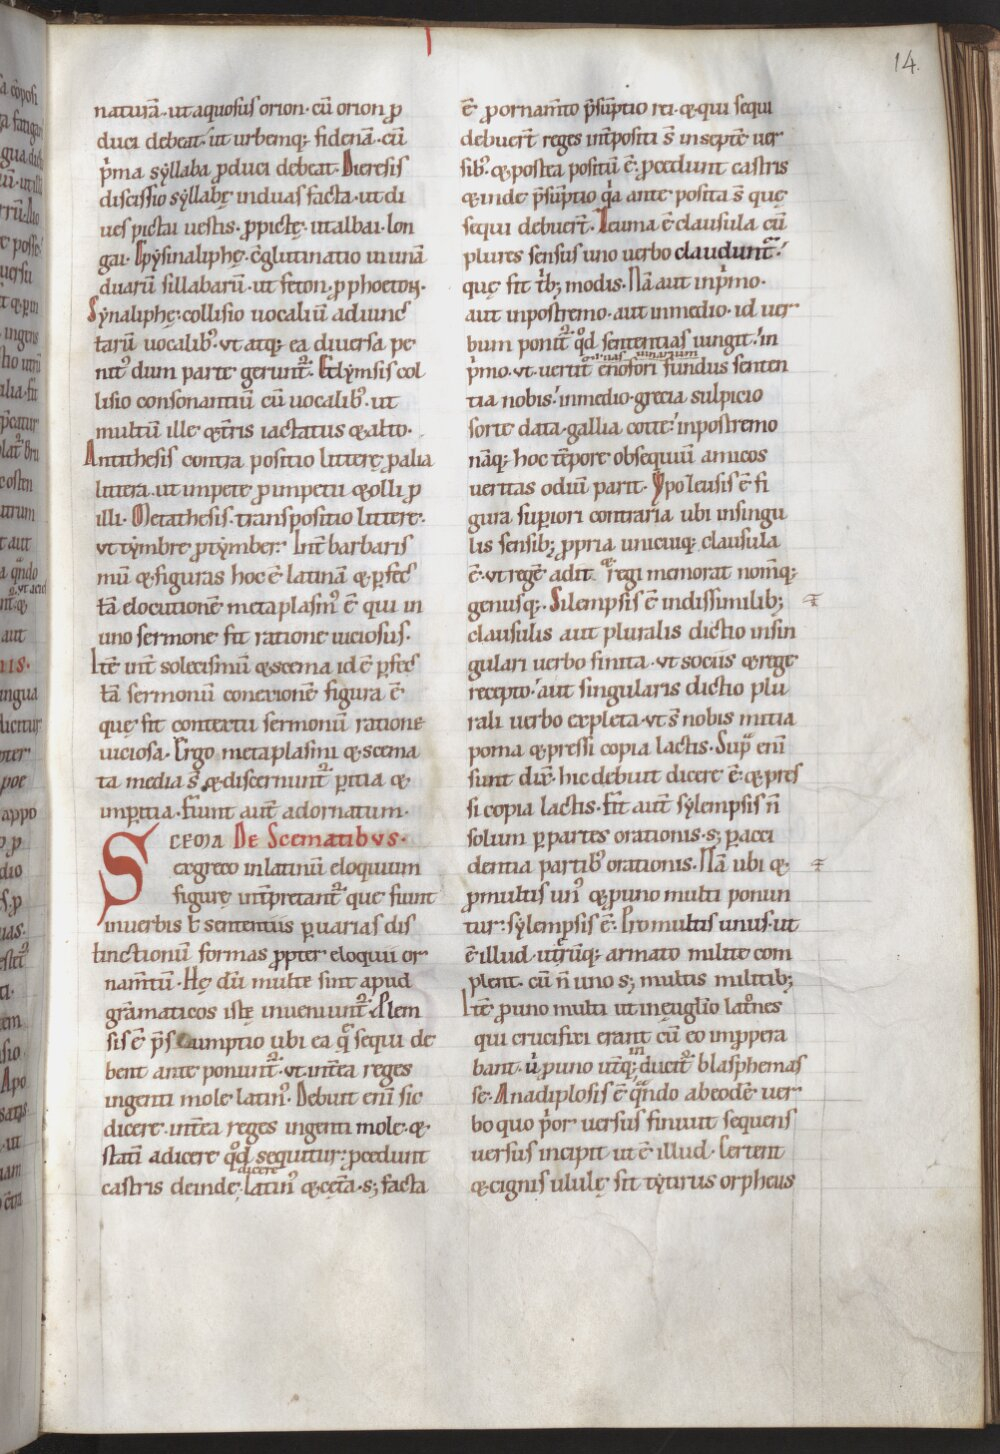 14.
naturā. ut aquosus orion. cū orion ꝓ
duci debeat. ut urbemq; fidenā. cū
p̄ma syllaba ꝓduci debeat. Dieresis
discissio syllabę induas facta. ut di
ues pictai uestis. ꝓ pictę. ut albai. lon
gai. Epysinaliphę. ē glutinatio in unā
duarū sillabarū. ut feton. ꝓ phoeton.
Synaliphę. collisio uocaliū adiunc
tarū uocalib᷒. vt atq; ea diuersa pe
nit᷒ dum parte gerunt᷑. Etlymsis col
lisio consonantiū cū uocalib᷒. ut
multū ille & t̄ris iactatus & alto.
Antithesis contra positio litterę ꝓ alia
littera. ut impete ꝓ impetu & olli ꝓ
illi. Metathesis. transpositio littere.
vt tymbre ꝓ tymber. Int̄ barbaris
mū & figuras hoc ē latinā & ꝑfec
tā elocutionē metaplasm᷒ ē qui in
uno sermone fit ratione uiciosus.
Itē int̄ solecismū & scema id ē ꝑfec
tā sermonū conexionē figura ē
quę fit contextu sermonū ratione
uiciosa. Ergo metaplasmi & scema
ta media s̄ & discernunt᷑ ꝑitia &
imꝑitia. Fiunt aut̄ ad ornatum.
SCEMA De Scematibus.
ex greco in latinū eloquium
figurę int̄pretant᷑ que fiunt
in uerbis ł sententiis ꝑ uarias dis
tinctionū formas ꝓpter eloquii or
nam̄tū. Hę dū multe sint apud
grāmaticos iste inueniunt᷑. Plem
sis ē p̄s umptio ubi ea q̄ sequi de
bent ante ponunt᷑. vt int̄ea reges
ingenti mole latin᷒. Debuit eni sic
dicere. int̄ea reges ingenti mole. &
statī adicere qd̄ sequitur: ꝓcedunt
dicere
castris deindę. latin᷒ & cęta. s; facta
ē ꝓ ornam̄to p̄sūptio rei. & qui sequi
debuert̄ reges int̄positi s̄ in septē uer
sib᷒. & postea positū ē. ꝓcedunt castris
& inde p̄sūptio q̄a ante posita s̄ quę
sequi debuert̄. Zeuma ē clausula cū
plures sensus uno uerbo claudunt᷑.
quę fit t̄b; modis. Nā aut in p̄mo.
aut in postremo. aut in medio. id uer
bum ponit᷑ qd̄ sententias iungit. in
p̄mo. vt. uertit enofori fundus senten
tia nobis. in medio. grecia sulpicio
sorte data. gallia cotte. in postremo
nāq; hoc tēpore obsequiū amicos
ueritas odiū parit. Ypoleusis ē fi
gura suꝑiori contraria ubi in singu
lis sensib; ꝓpria unicuiq; clausula
ē. vt regē adit & regi memorat nom̄q;
genusq;. Silempsis ē in dissimilib;
clausulis aut pluralis dictio in sin
gulari uerbo finita. vt sociis & rege
recepto. aut singularis dictio plu
rali uerbo expleta. vt s̄ nobis mitia
poma & pressi copia lactis. Sup̄ eni
sunt dix̄. hic debuit dicere ē. & pres
si copia lactis. Fit aut̄ sylempsis n̄
solum ꝑ partes orationis. s; ꝑ acci
dentia partib᷒ orationis. Nā ubi &
ꝓ multis un᷒ & ꝓ uno multi ponun
tur: sylempsis ē. Pro multis unus. ut
ē illud. utrūq; armato milite com
plent. cū n̄ uno s; multis militib;
Itē ꝓ uno multi ut in euglio latrones
qui crucifixi erant cū eo imꝓpera
in
bant. ū ꝓ uno ut̄q; ducit᷑ blasphemas
se. Anadiplosis ē qn̄do ab eodē uer
bo quo p̄or uersus finiuit sequens
uersus incipit ut ē illud. Certent
& cignis ululę sit tytirus orpheus